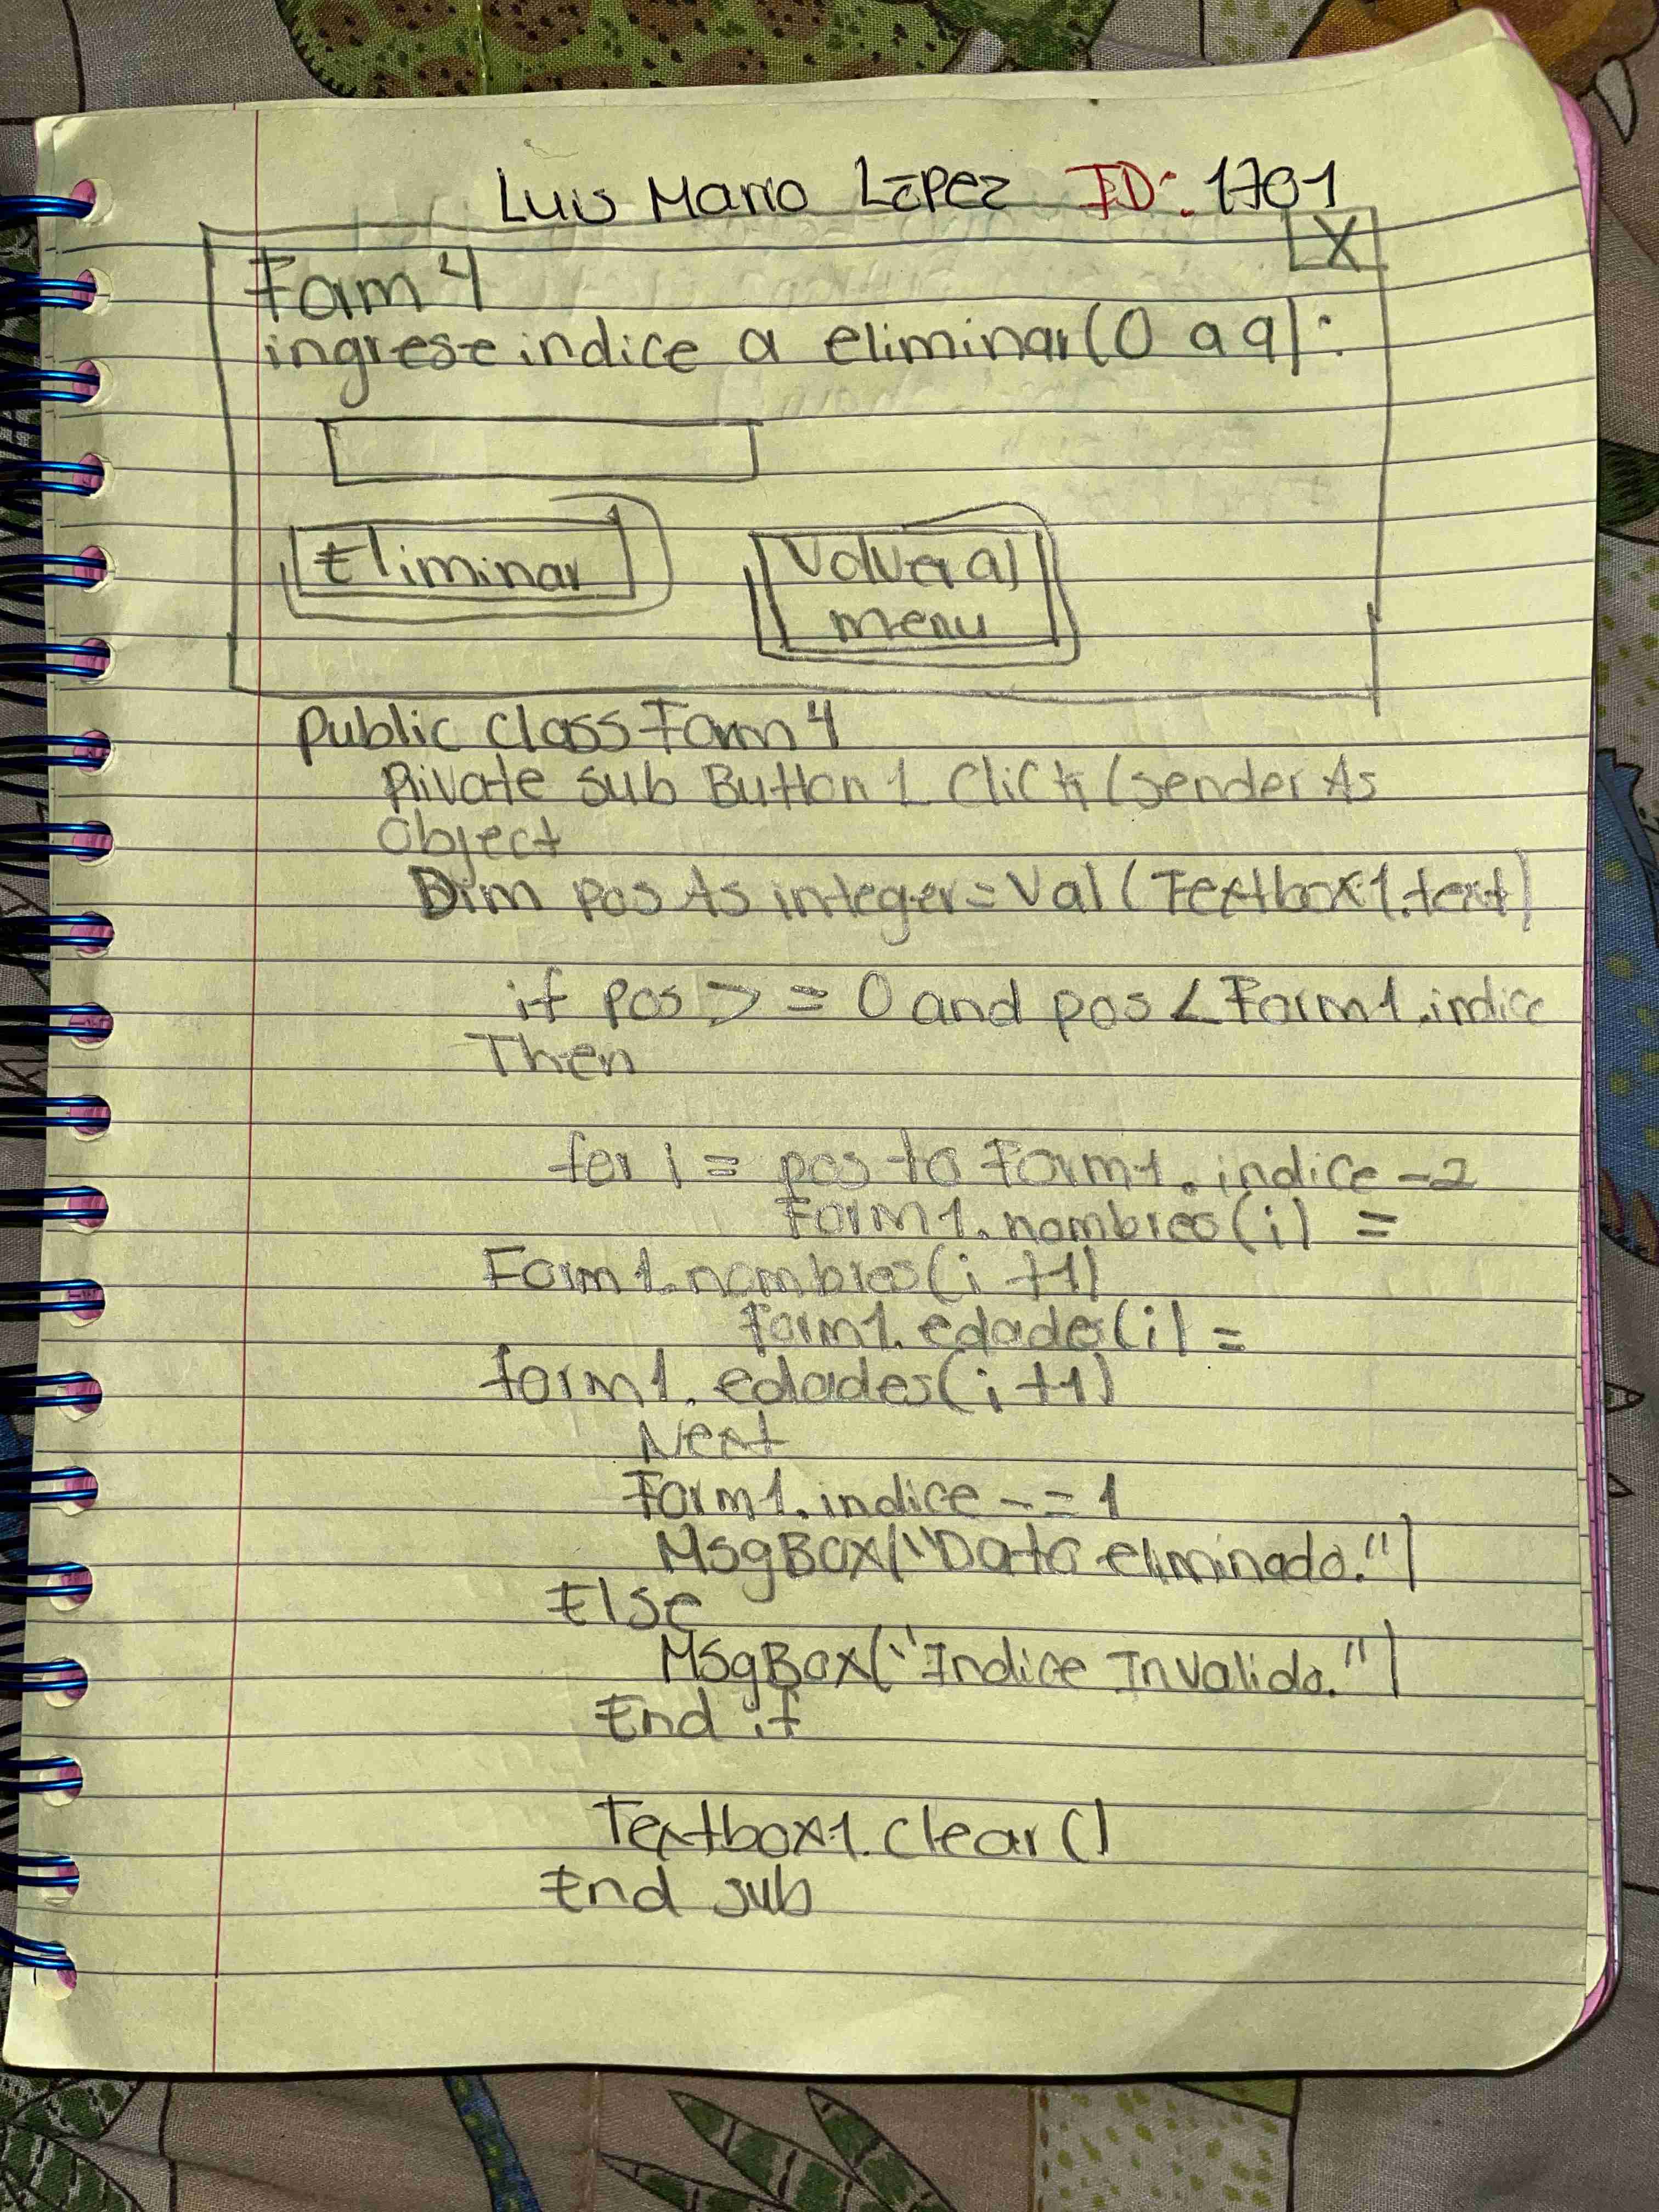 Luis Mario López ID: 1701
X
Form 4
ingrese indice a eliminar (0 a 9):
Eliminar
Volver al
menu
public class Form 4
Private sub Button 1 Click (sender As
Object
Dim pos As integer = Val (Textbox1.text)
if pos > = 0 and pos < Form1.indice
Then
for i = pos to Form1.indice -2
Form1.nombres(i) =
Form1.nombres(i +1)
form1.edades(i) =
form1.edades(i +1)
Next
Form1.indice -= 1
MsgBox("Dato eliminado.")
Else
MsgBox("Indice Invalido.")
End if
Textbox1.clear()
End sub